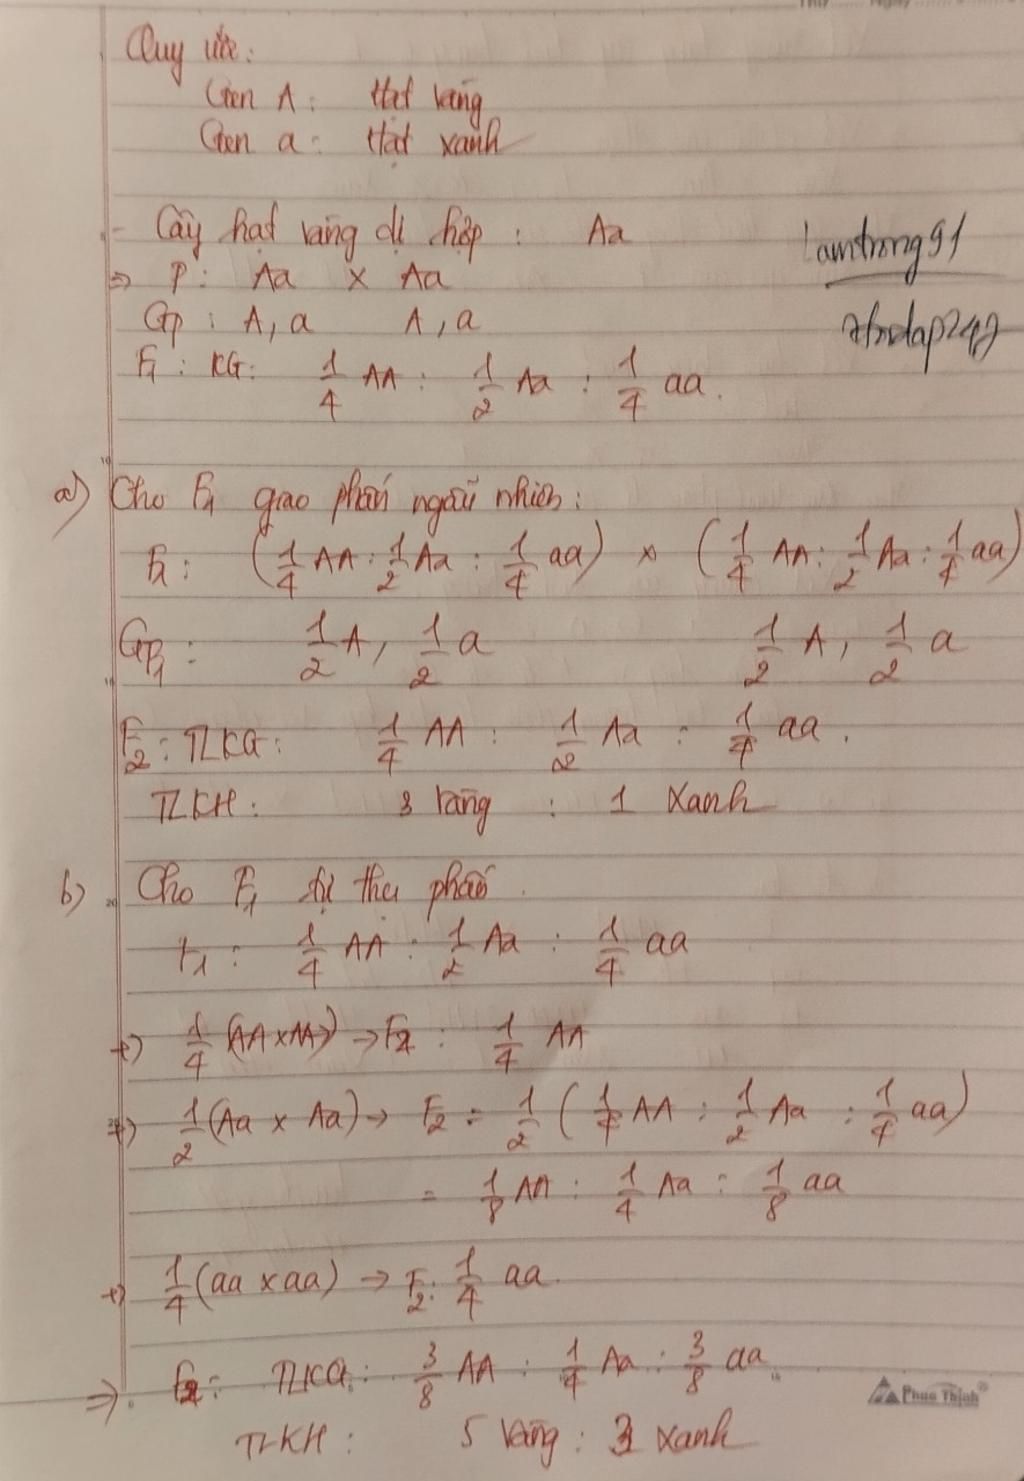 Quy ước:
Gen A: Hạt vàng
Gen a: Hạt xanh
- Cây hạt vàng dị hợp: Aa
=> P: Aa x Aa
lamtrong91
Gp: A, a A, a
F1: KG: 1/4 AA : 1/2 Aa : 1/4 aa.
a) Cho F1 giao phấn ngẫu nhiên:
F1: (1/4 AA : 1/2 Aa : 1/4 aa) x (1/4 AA : 1/2 Aa : 1/4 aa)
GF1: 1/2 A, 1/2 a 1/2 A, 1/2 a
F2: TLKG: 1/4 AA : 1/2 Aa : 1/4 aa.
TLKH: 3 vàng : 1 Xanh
b) Cho F1 tự thụ phấn.
F1: 1/4 AA : 1/2 Aa : 1/4 aa
+) 1/4 (AA x AA) → F2: 1/4 AA
+) 1/2 (Aa x Aa) → F2 = 1/2 (1/4 AA : 1/2 Aa : 1/4 aa)
= 1/8 AA : 1/4 Aa : 1/8 aa
+) 1/4 (aa x aa) → F2: 1/4 aa.
=> F2: TLKG: 3/8 AA : 1/4 Aa : 3/8 aa.
Phuc Thịnh
TLKH: 5 vàng : 3 xanh